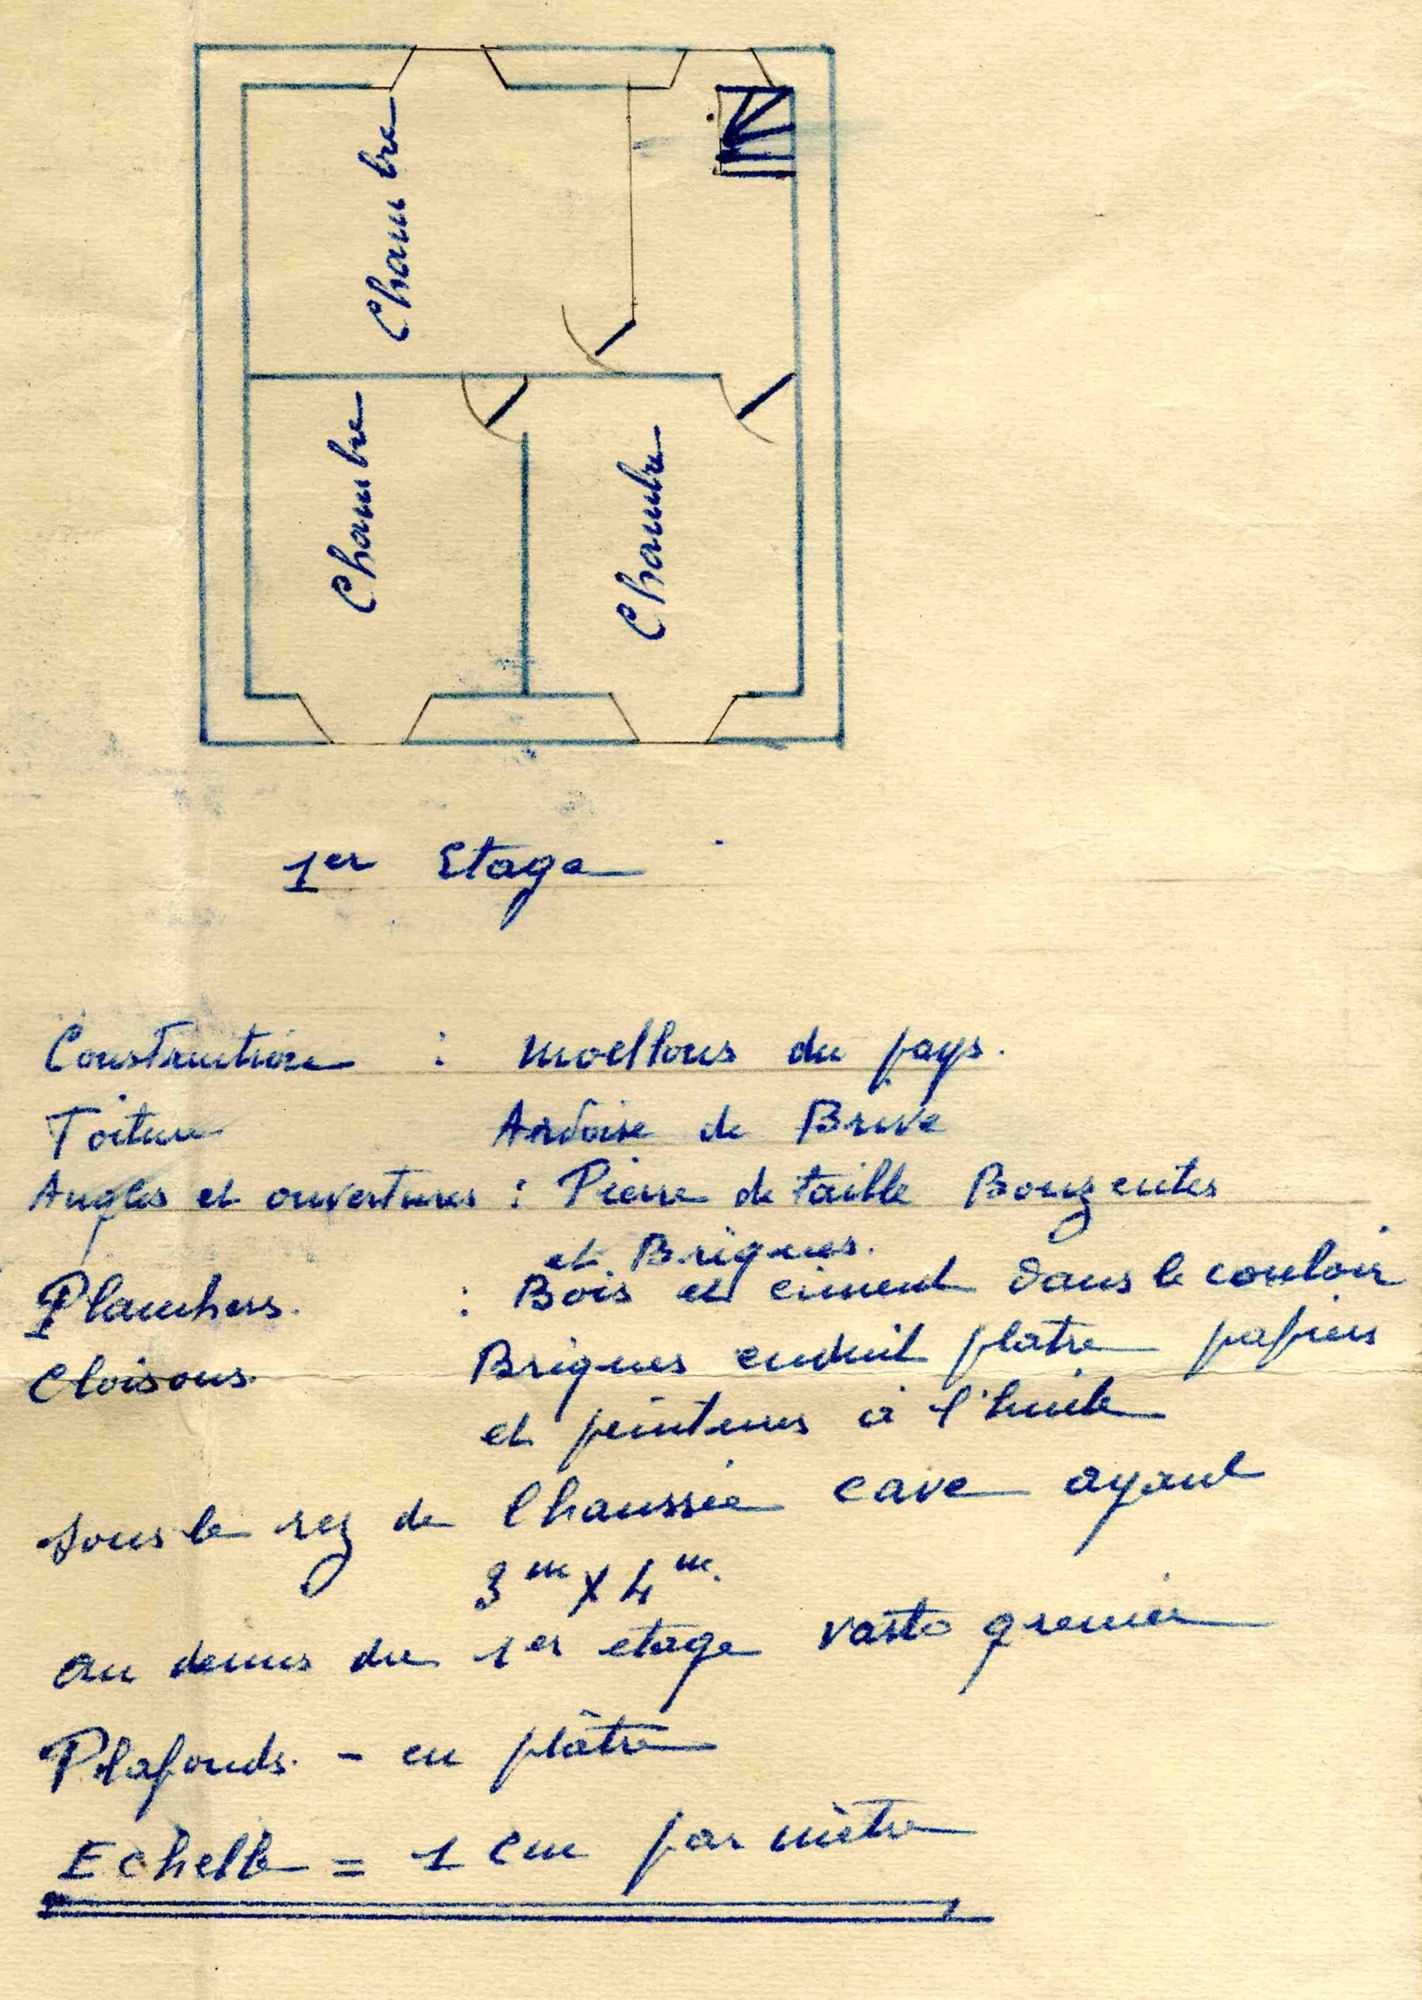 Chambre
Chambre
Chambre
1er Etage
Construction : moellons du pays.
Toiture Ardoise de Brive
Angles et ouvertures : Pierre de taille Bouzentes
et Briques.
Planchers. : Bois et ciment dans le couloir
Cloisons. Briques enduit platre papiers
et peintures à l'huile
sous le rez de Chaussée cave ayant
3m x 4m.
au dessus du 1er etage vaste grenier
Plafonds. - en plâtre
Echelle = 1 cm par mètre